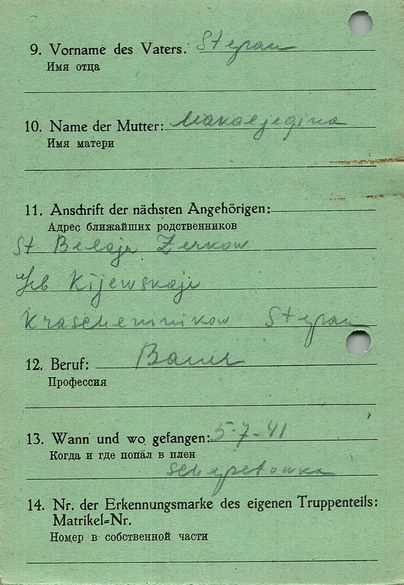 9. Vorname des Vaters. Stepan
Имя отца
10. Name der Mutter:
Имя матери
11. Anschrift der nächsten Angehörigen:
Адрес ближайших родственников
St Belaja Zerkow
Kijewskaje
Krascheninnikow Stepan
12. Beruf: Bauer
Профессия
13. Wann und wo gefangen: 5-7-41
Когда и где попал в плен
Schepetowka
14. Nr. der Erkennungsmarke des eigenen Truppenteils:
Matrikel=Nr.
Номер в собственной части